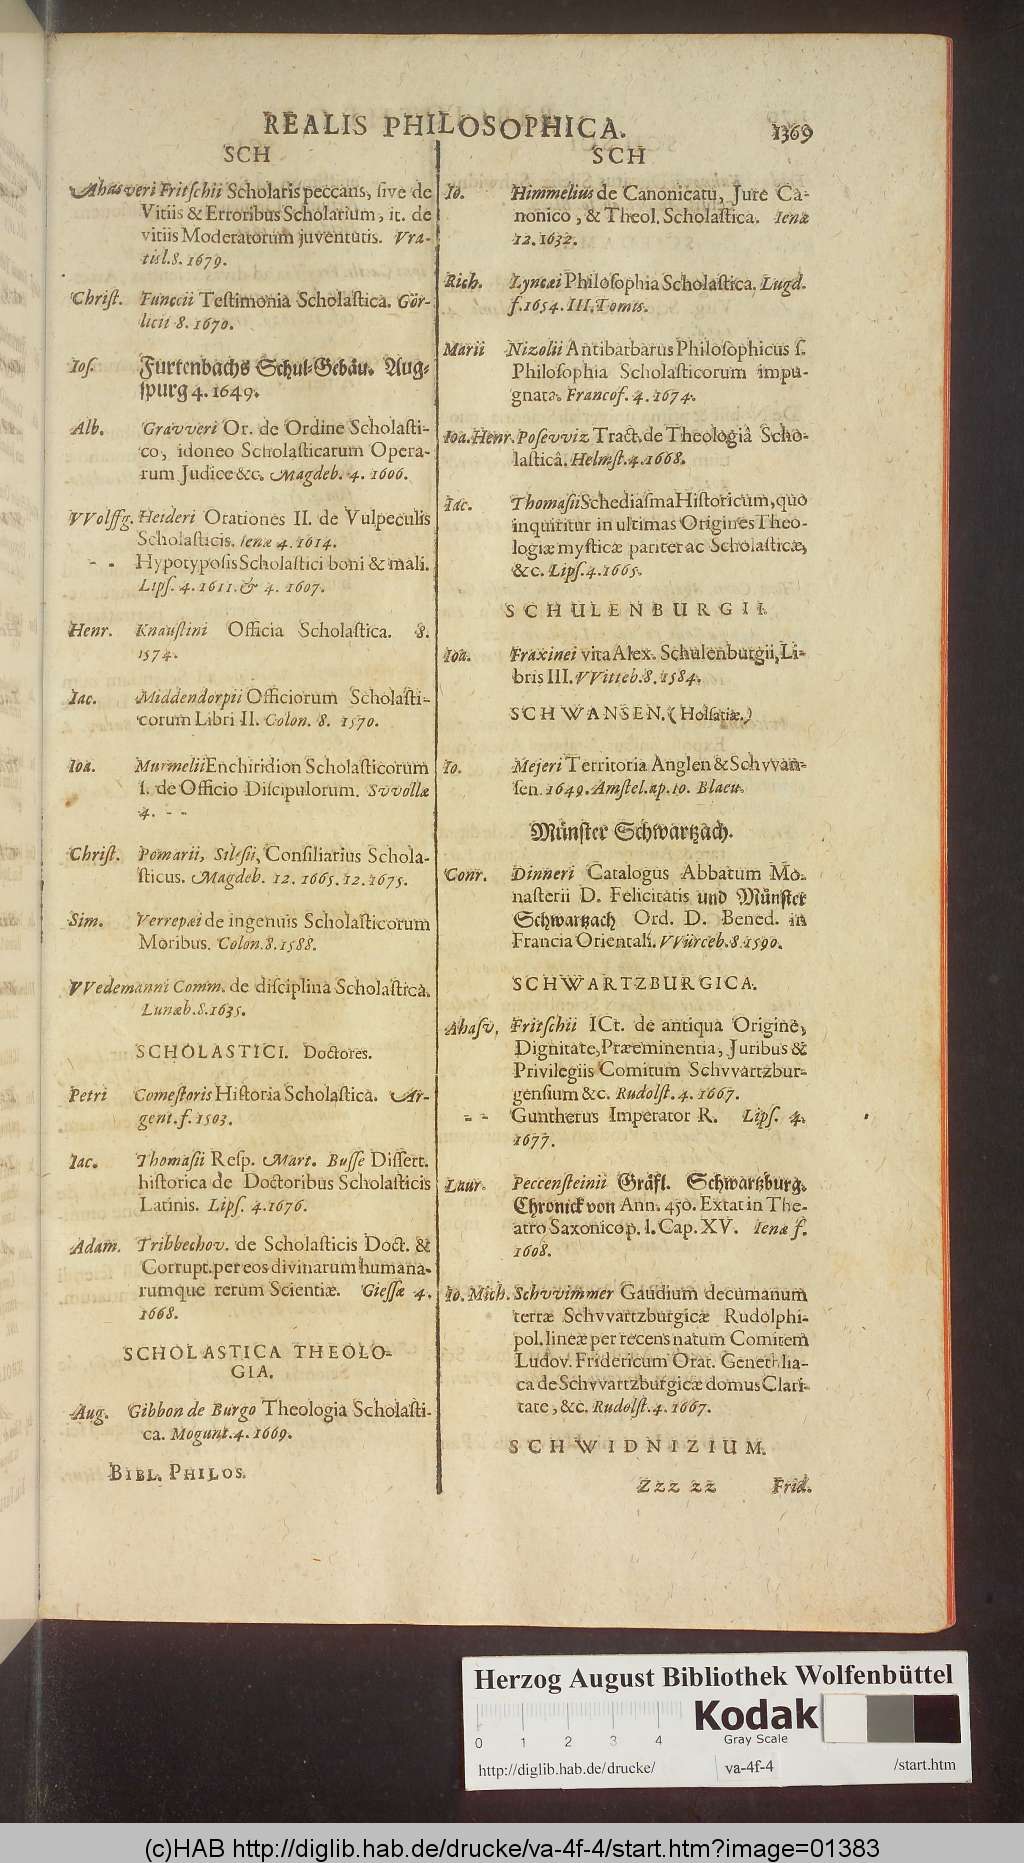 REALIS PHILOSOPHICA. 1369
SCH
Ahasveri Fritschii Scholaris peccans, sive de
Vitiis & Erroribus Scholarium, it. de
vitiis Moderatorum juventutis. Vra-
tisl. 8. 1679.
Christ. Funccii Testimonia Scholastica. Gör-
licii 8. 1670.
Ios. Furtenbachs Schul-Gebäu. Aug-
spurg 4. 1649.
Alb. Gravveri Or. de Ordine Scholasti-
co, idoneo Scholasticarum Opera-
rum Judice &c. Magdeb. 4. 1606.
VVolffg. Heideri Orationes II. de Vulpeculis
Scholasticis. Ienæ 4. 1614.
- - Hypotyposis Scholastici boni & mali.
Lips. 4. 1611. & 4. 1607.
Henr. Knaustini Officia Scholastica. 8.
1574.
Iac. Middendorpii Officiorum Scholasti-
corum Libri II. Colon. 8. 1570.
Ioa. Murmelii Enchiridion Scholasticorum
s. de Officio Discipulorum. Svvollæ
4. - -
Christ. Pomarii, Silesii, Consiliarius Schola-
sticus. Magdeb. 12. 1665. 12. 1675.
Sim. Verrepæi de ingenuis Scholasticorum
Moribus. Colon. 8. 1588.
VVedemanni Comm. de disciplina Scholastica.
Lunæb. 8. 1635.
SCHOLASTICI. Doctores.
Petri Comestoris Historia Scholastica. Ar-
gent. f. 1503.
Iac. Thomasii Resp. Mart. Busse Dissert.
historica de Doctoribus Scholasticis
Latinis. Lips. 4. 1676.
Adam. Tribbechov. de Scholasticis Doct. &
Corrupt. per eos divinarum humana-
rumque rerum Scientiæ. Giessæ 4.
1668.
SCHOLASTICA THEOLO-
GIA.
Aug. Gibbon de Burgo Theologia Scholasti-
ca. Mogunt. 4. 1669.
BIBL. PHILOS.
SCH
Io. Himmelius de Canonicatu, Jure Ca-
nonico, & Theol. Scholastica. Ienæ
12. 1632.
Rich. Lyncæi Philosophia Scholastica. Lugd.
f. 1654. III. Tomis.
Marii Nizolii Antibarbarus Philosophicus s.
Philosophia Scholasticorum impu-
gnata. Francof. 4. 1674.
Ioa. Henr. Posevviz Tract. de Theologiâ Scho-
lasticâ. Helmst. 4. 1668.
Iac. Thomasii Schediasma Historicum, quo
inquiritur in ultimas Origines Theo-
logiæ mysticæ pariter ac Scholasticæ,
&c. Lips. 4. 1665.
SCHULENBURGII.
Ioa. Fraxinei vita Alex. Schulenburgii, Li-
bris III. VVitteb. 8. 1584.
SCHWANSEN. (Holsatiæ.)
Io. Mejeri Territoria Anglen & Schvvan-
sen. 1649. Amstel. ap. Io. Blaeu.
Münster Schwartzach.
Conr. Dinneri Catalogus Abbatum Mo-
nasterii D. Felicitatis und Münster
Schwartzach Ord. D. Bened. in
Francia Orientali. VVürceb. 8. 1590.
SCHWARTZBURGICA.
Ahasv. Fritschii ICt. de antiqua Origine,
Dignitate, Præeminentia, Juribus &
Privilegiis Comitum Schvvartzbur-
gensium &c. Rudolst. 4. 1667.
- - Guntherus Imperator R. Lips. 4.
1677.
Laur. Peccensteinii Gräfl. Schwartzburg.
Chronick von Ann. 450. Extat in The-
atro Saxonico p. 1. Cap. XV. Ienæ f.
1608.
Io. Mich. Schvvimmer Gaudium decumanum
terræ Schvvartzburgicæ Rudolphi-
pol. lineæ per recens natum Comitem
Ludov. Fridericum Orat. Genethlia-
ca de Schvvartzburgicæ domus Clari-
tate, &c. Rudolst. 4. 1667.
SCHWIDNIZIUM.
Zzz zz Frid.
Herzog August Bibliothek Wolfenbüttel
0 1 2 3 4
Kodak
Gray Scale
http://diglib.hab.de/drucke/ va-4f-4 /start.htm
(c)HAB http://diglib.hab.de/drucke/va-4f-4/start.htm?image=01383